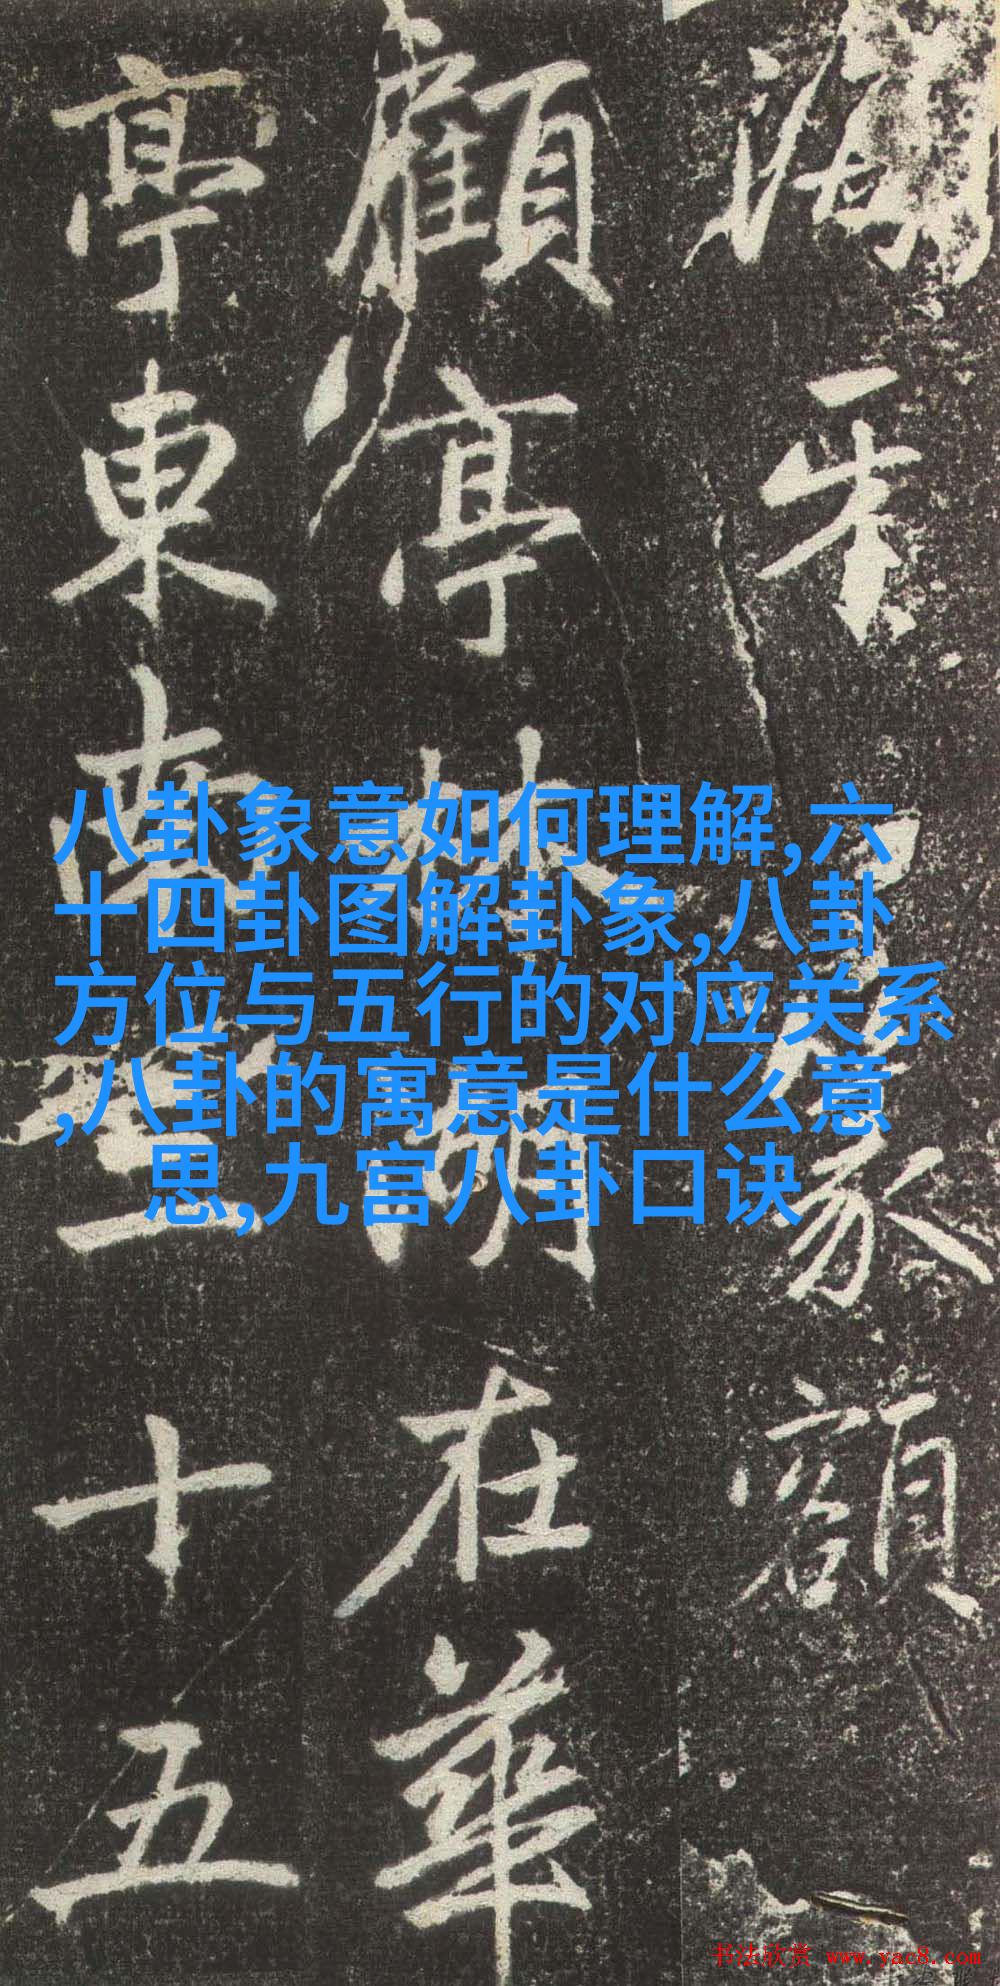 顧亭林湖在華
亭東南三十五
八卦象意如何理解,六
十四卦图解卦象,八卦
方位与五行的对应关系
,八卦的寓意是什么意
思,九宫八卦口诀
书法欣赏 www.yac8.com